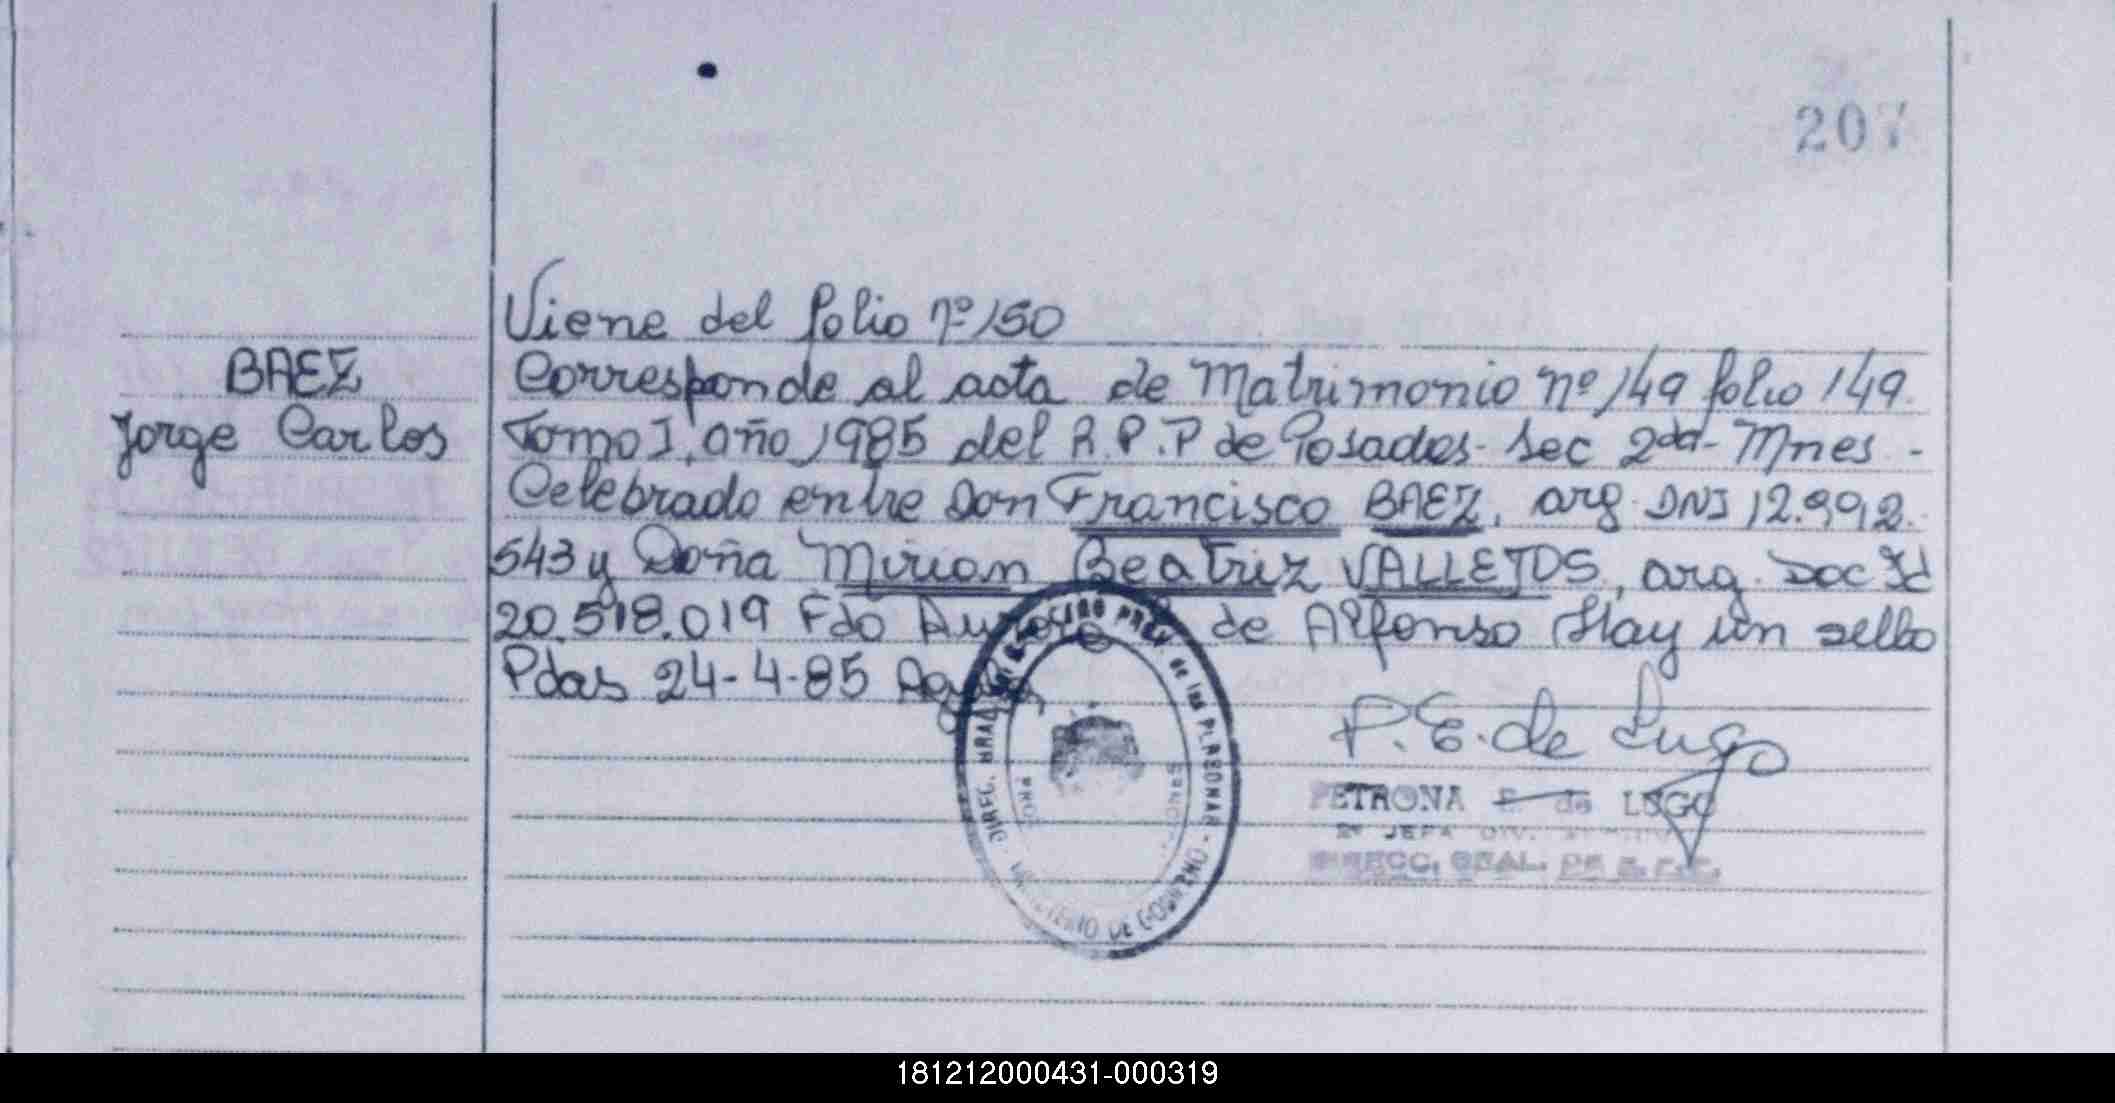 207
Viene del folio nº 150
BAEZ
Jorge Carlos
Corresponde al acta de Matrimonio nº 149 folio 149.
Tomo I, año 1985 del R.P.P de Posadas- Sec 2da- Mnes -
Celebrado entre Don Francisco BAEZ, arg. DNI 12.992.
543 y Doña Mirian Beatriz VALLEJOS, arg. Doc Id
20.518.019 Fdo de Alfonso Hay un sello
Pdas 24-4-85
P.E. de Lugo
PETRONA E. de LUGO
2º JEFA DIV.
DIRECC. GRAL.
de las PERSONAS
MINISTERIO DE GOBIERNO
181212000431-000319